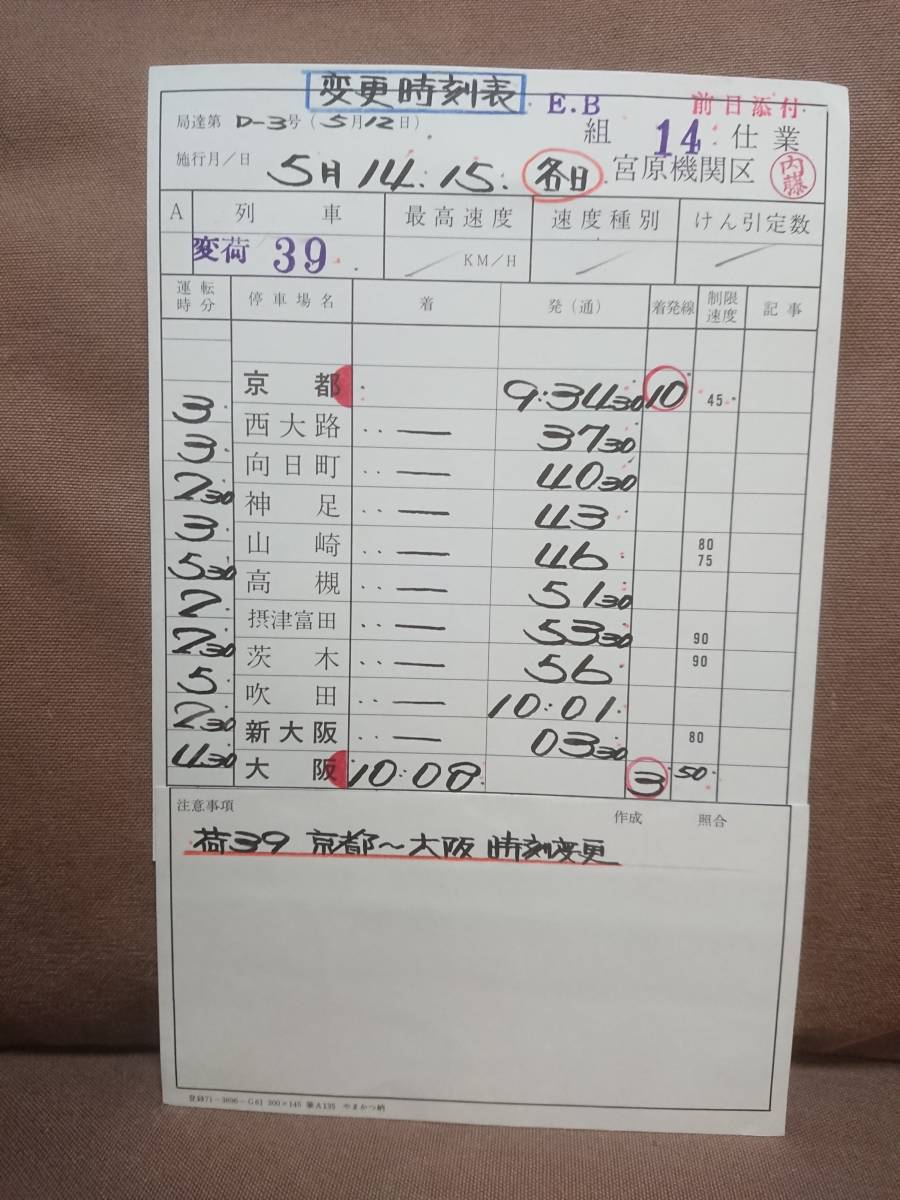 変更時刻表
E.B 前日添付
局達第 D-3号(5月12日) 組 14 仕業
施行月/日 5月14.15. 各日 宮原機関区 内藤
A 列車 最高速度 速度種別 けん引定数
変荷 39 KM/H
運転時分 停車場名 着 発(通) 着発線 制限速度 記事
京都 9:34 30 10 45
3
西大路 ‥ — 37 30
3
向日町 ‥ — 40 30
2 30
神足 ‥ — 43
3
山崎 ‥ — 46 80 75
5 30
高槻 ‥ — 51 30
2
摂津富田 ‥ — 53 30 90
2 30
茨木 ‥ — 56 90
5
吹田 ‥ — 10:01
2 30
新大阪 ‥ — 03 30 80
4 30
大阪 10:08 3 50
注意事項 作成 照合
荷39 京都~大阪 時刻変更